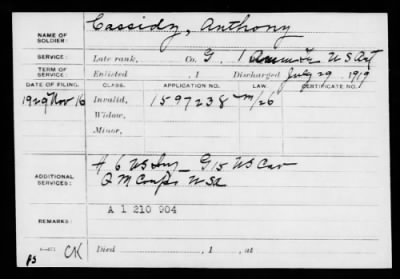 NAME OF SOLDIER: Cassidy, Anthony
SERVICE: Late rank, Co. G. 1 Ammu Tr US Art
TERM OF SERVICE: Enlisted , 1 Discharged July 29, 1919
DATE OF FILING. CLASS. APPLICATION NO. LAW. CERTIFICATE NO.
1929 Nov 16 Invalid, 1597238
Widow,
Minor,
ADDITIONAL SERVICES: H 6 US Inf G 15 US Cav
Q M Corps USA
REMARKS: A 1 210 904
CK Died , 1 , at